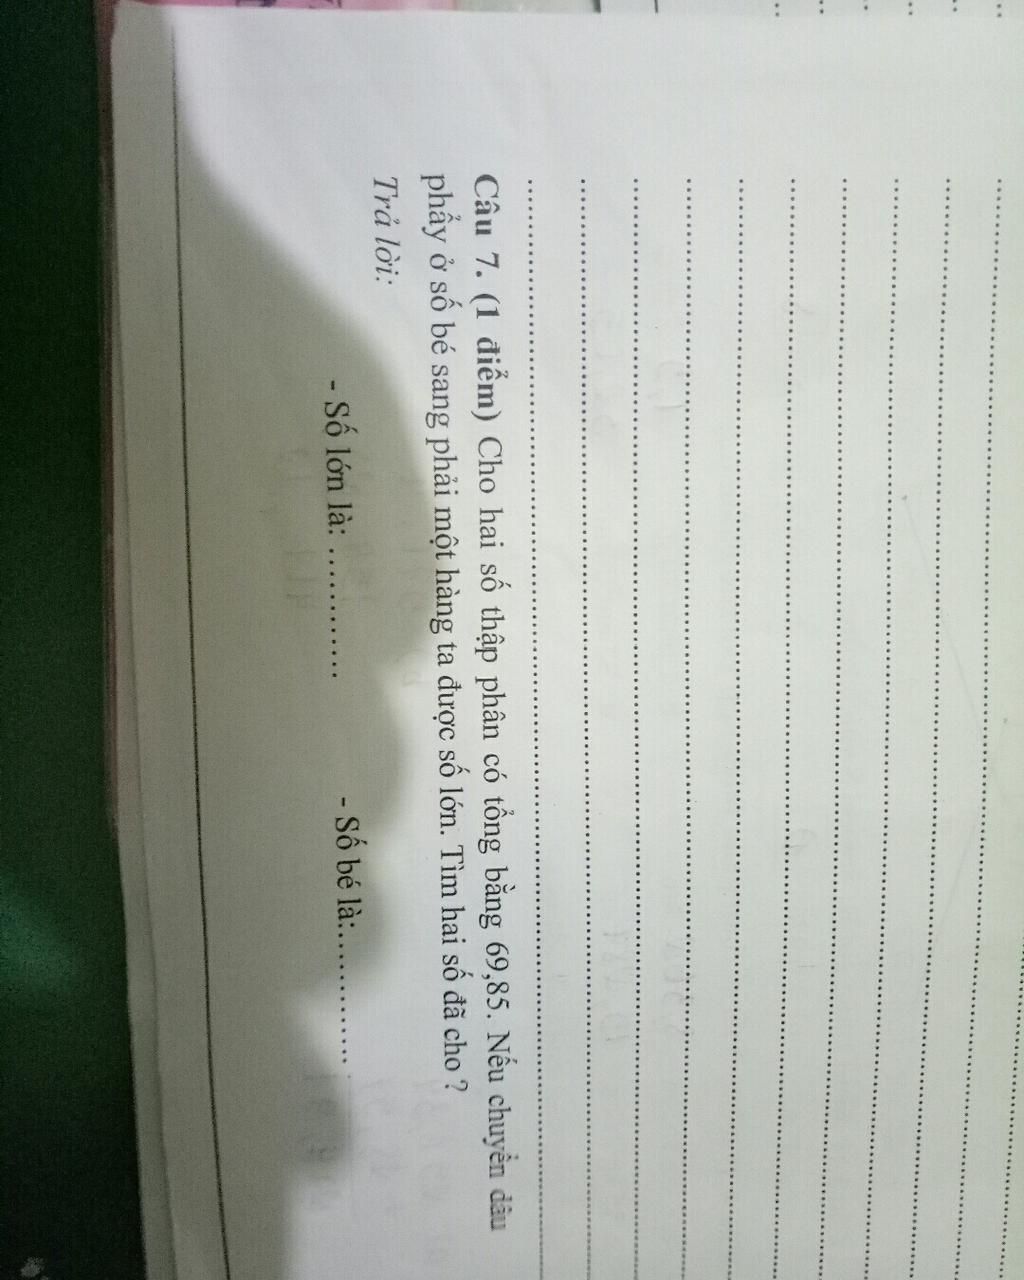 Câu 7. (1 điểm) Cho hai số thập phân có tổng bằng 69,85. Nếu chuyển dấu
phẩy ở số bé sang phải một hàng ta được số lớn. Tìm hai số đã cho ?
Trả lời:
- Số lớn là: ........... - Số bé là:............